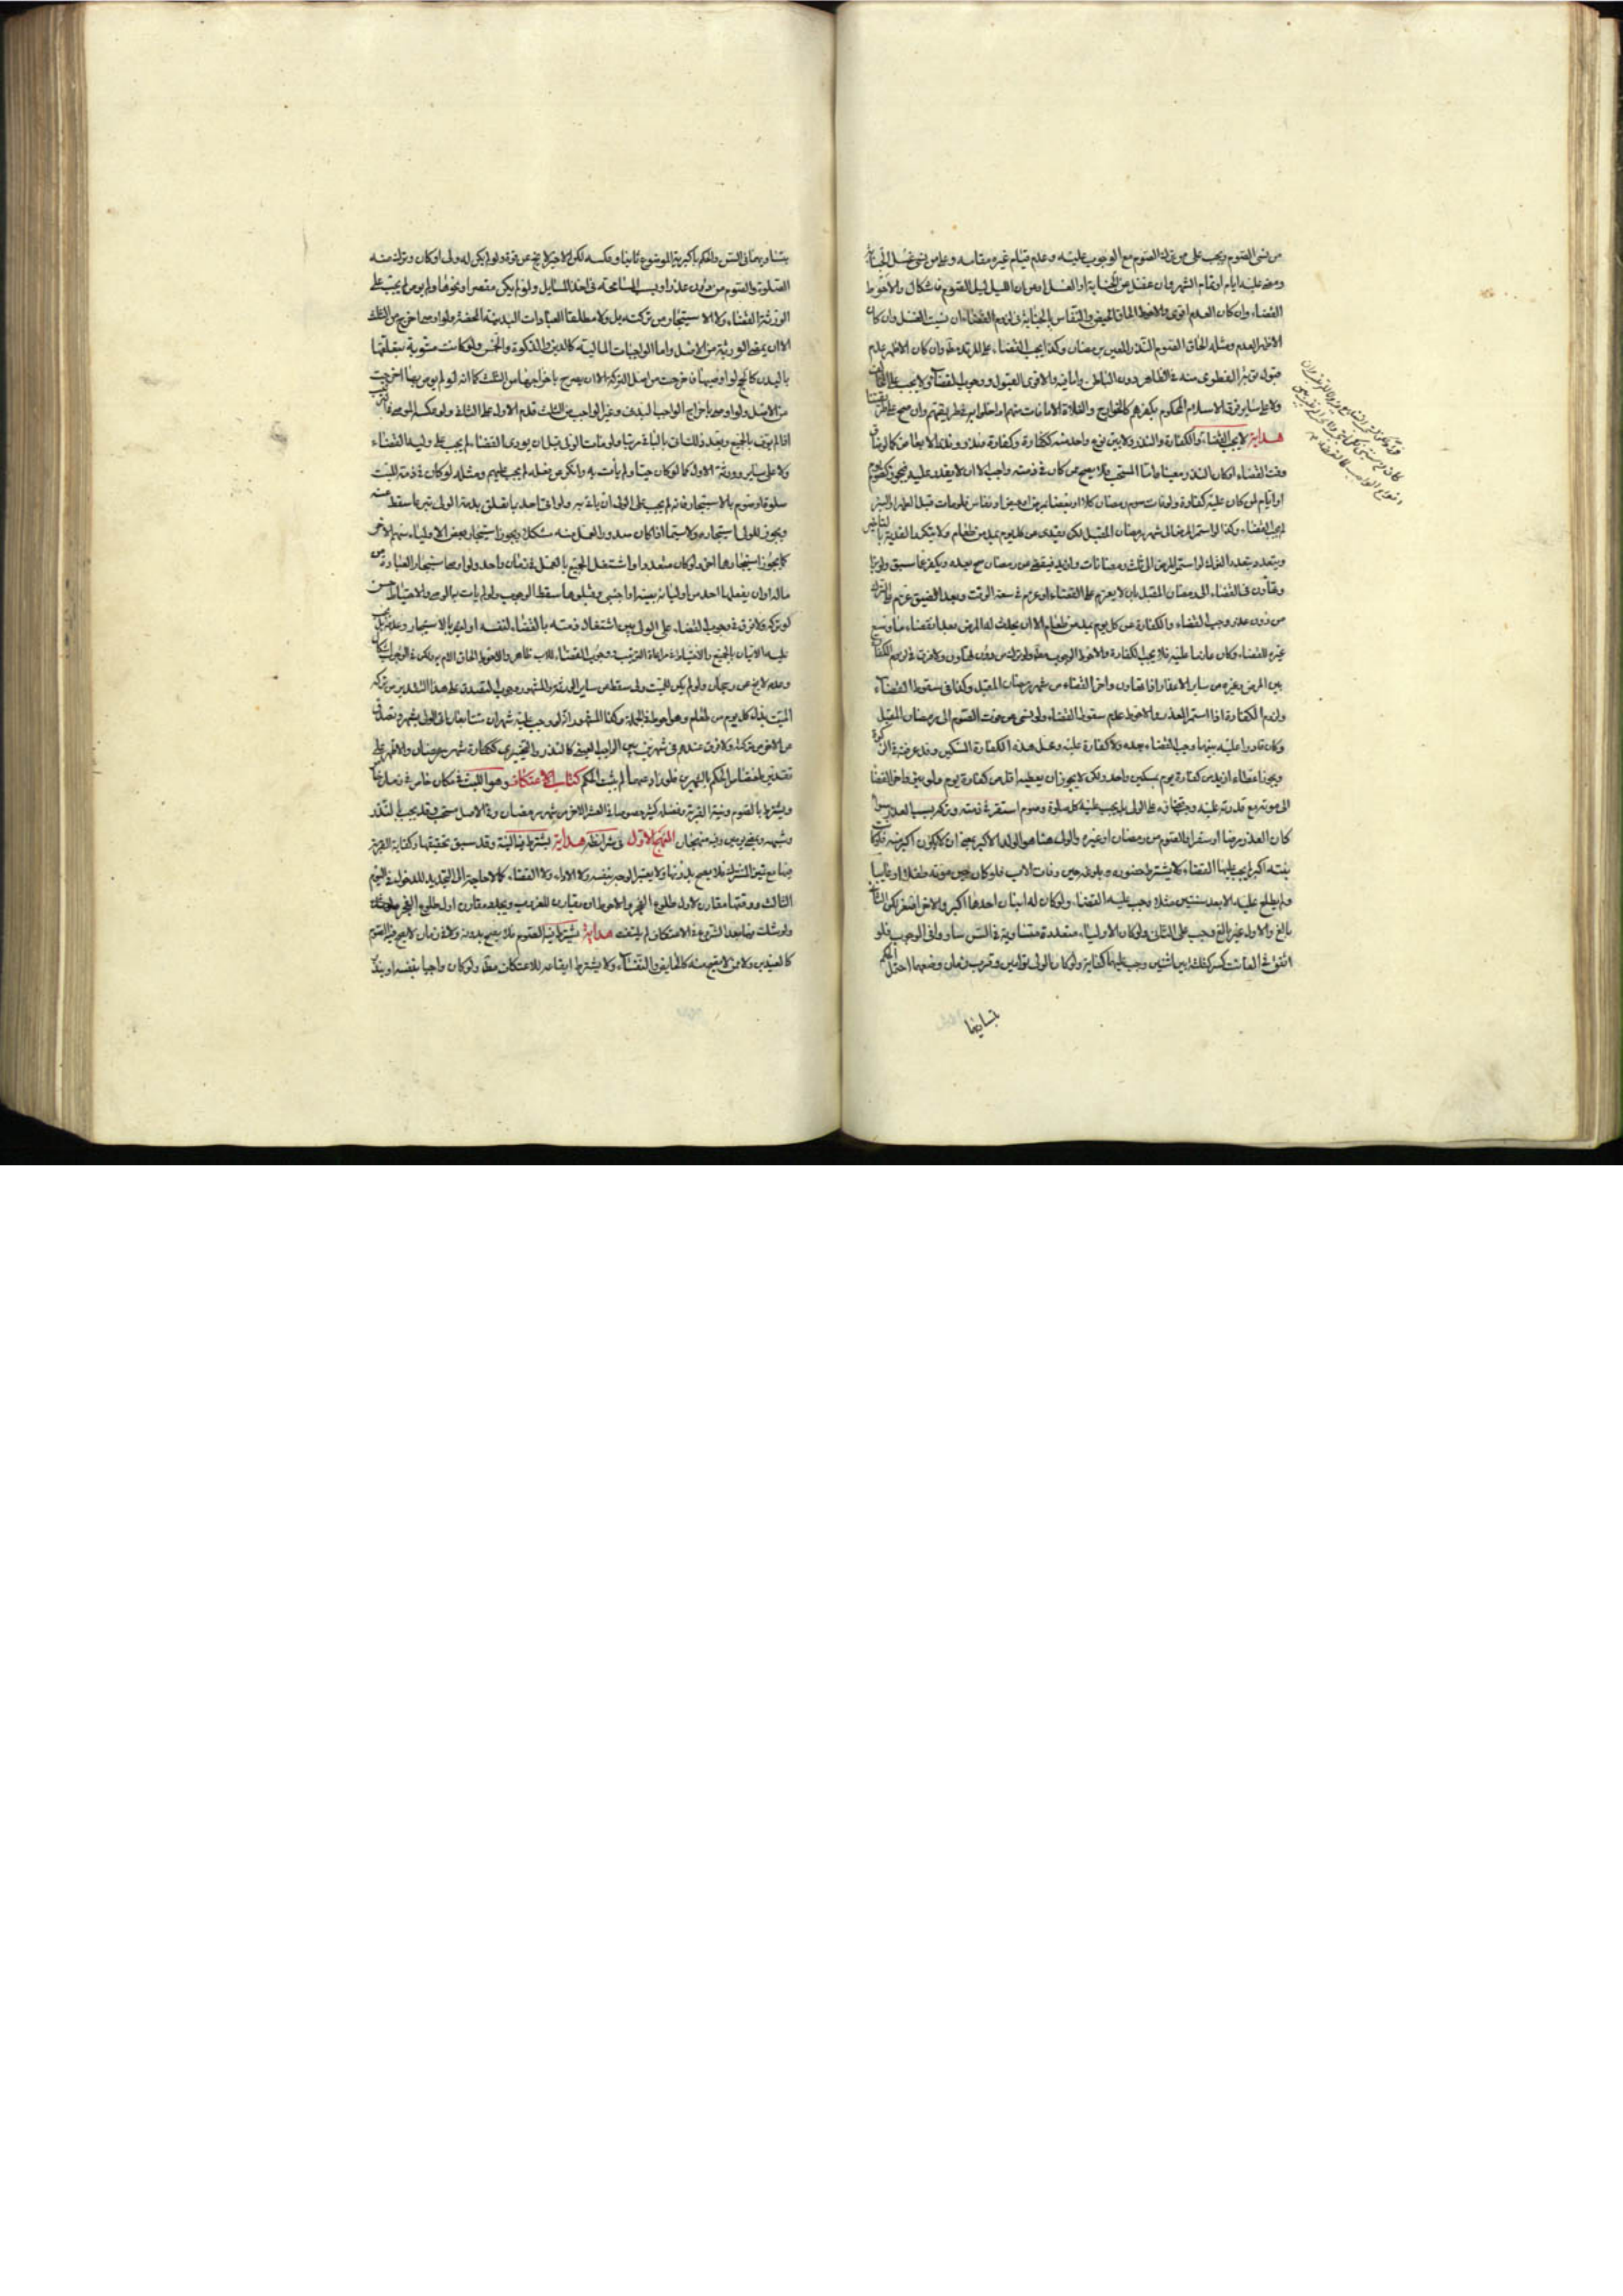 من نسى الصوم ويجب على من ترك الصوم مع الوجوب عليه وعدم قيام غيره مقامه وعلى من نسى غسل الجنابة
ومضى عليه ايام او تمام الشهر وان غفل عن الجنابة او الغسل او من ان الليل ليل الصوم فاشكال والاحوط
القضاء وان كان العدم اقوى والاحوط الحاق الحيض والنفاس بالجنابة فى لزوم القضاء ان نسيت الغسل وان كان
الاظهر العدم ومثله الحاق الصوم النذر المعين برمضان وكذا يجب القضاء على المرتد مطلقا وان كان الاظهر عدم
قبول توبة الفطرى منه فى الظاهر دون الباطن والاقوى القبول ووجوب القضاء ولا يجب على المخالف
ولا على ساير فرق الاسلام المحكوم بكفرهم كالخوارج والغلاة الا ما فات منهم او اخلوا به على طريقتهم وان صح على طريقتنا
هداية لا يجب القضاء والكفارة والنذر ولا بين نوع واحد منه ككفارة وكفارة ونذر ونذر الا بما
وقت القضاء او كان النذر معينا واما المستحب فلا يصح ممن كان فى ذمته واجب الا ان لا يقدر عليه فيجوز كصوم يوم
او ايام لمن كان عليه كفارة ولو فات صوم رمضان كلا او بعضا بمرض او حيض او نفاس فلو مات قبل الطهر او البرء
لم يجب القضاء وكذا لو استمر المرض الى شهر رمضان المقبل لكن يفدى عن كل يوم بمد من طعام ولا يتكرر الفدية بالتاخير
ويتعدد بتعدد الفوات لو استمر المرض الى ثلث رمضانات وازيد فيقضى عن رمضان صح بعده ويكفر عما سبق ولو برا
وتهاون فى القضاء الى رمضان المقبل بان لا يعزم على القضاء او عزم فى سعة الوقت وبعد الضيق عزم على الترك
من دون عذر وجب القضاء والكفارة عن كل يوم بمد من طعام الا ان يحدث له المرض بعد انقضاء ما وسع
عزم للقضاء وكان عازما عليه فلا يجب الكفارة والاحوط الوجوب مطلقا ولو ترك من دون تهاون ولا فرق فى لزوم الكفارة
بين المرض وغيره من ساير الاعذار اذا تهاون واخر القضاء من شهر رمضان المقبل وكذا فى سقوط القضاء
ولزوم الكفارة اذا استمر العذر والاحوط عدم سقوط القضاء ولو نسى من فوت الصوم الى رمضان المقبل
وكان قادرا عليه بينهما وجب القضاء بعده ولا كفارة عليه ومحل هذه الكفارة المسكين وقد عرفته فى الزكوة
ويجوز اعطاء ازيد من كفارة يوم بمسكين واحد ولكن لا يجوز ان يعطيه اقل من كفارة يوم ولو بقى واخر القضاء
الى موته مع قدرته عليه وجب قضاؤه على الولى بل يجب عليه كل صلوة وصوم استقر فى ذمته وتركه بسبب العذر سواء
كان العذر مرضا او سفرا والصوم من رمضان او غيره والولى هنا هو الولد الاكبر بمعنى ان لا يكون اكبر منه فلو كانت
بنته اكبر لم يجب عليها القضاء ولا يشترط حضوره وبلوغه حين وفات الاب فلو كان حين موته طفلا او غايبا
ولم يطلع عليه الا بعد سنتين مثلا وجب عليه القضاء ولو كان له ابنان احدهما اكبر والاخر اصغر لكن الثانى
بالغ والاول غير بالغ وجب على الثانى ولو كان الاولياء متعددة متساوية فى السن ساووا فى الوجوب فلو
اتفق فى الفائت كسر كثلثة بين اثنين وجب عليهما كفاية ولو كان الولى توأمين وقرب زمان وضعهما احتمل الحكم
بتساويهما
بتساويهما فى السن والحكم باكبرية الموضوع ثانيا وعكسه لكن الاخير لا يخ عن قوة ولو لم يكن له ولى او كان وترك منه
الصلوة والصوم من دون عذر او بسبب المسامحة فى اخذ المسايل ولو لم يكن مقصرا ونحوها ولم يوص لم يجب على
الورثة القضاء ولا الاستيجار من تركته بل ولا مطلقا العبادات البدنية المحضة ولو اوصى بها اخرج من الثلث
الا ان يمضى الورثة من الاصل واما الواجبات المالية كالدين والزكوة والخمس ولو كانت مشوبة بتعلقها
بالبدن كالحج لو اوصى بها اخرجت من اصل التركة الا ان يصرح باخراجها من الثلث كما انه لو لم يوص بها اخرجت
من الاصل ولو اوصى باخراج الواجب البدنى وغير الواجب من الثلث قدم الاول على الثانى ولو عكس الموصى فى الترتيب
اذا لم يف بالجميع وبعد ذلك يات بالباقى مرتبا ولو مات الولى قبل ان يودى القضاء لم يجب على وليه القضاء
ولا على ساير ورثة الاول كما لو كان حيا ولم يات به وامكن من فعله لم يجب عليهم ومثله لو كان فى ذمة الميت
صلوة او صوم بالاستيجار فانه لم يجب على الولى ان ياتى به ولو اتى احد بما تعلق بذمة الولى تبرعا سقط عنه
ويجوز للولى استيجاره ولا سيما اذا كان صدور الفعل منه مشكلا ويجوز استيجار بعض الاولياء منهم الاخر
كما يجوز استيجارهما اخر ولو كان متعددا واشتغل الجميع بالفعل فى زمان واحد ولو اوصى باستيجار العبادة من
ماله او ان يفعلها احد من اوليائه بعينه او اجنبى وقبلوها سقط الوجوب ولو لم يات به الوصى والاحتياط حسن
لو تركه ولا فرق فى وجوب القضاء على الولى بين اشتغال ذمته بالقضاء لنفسه او لغيره بالاستيجار وعدمه بل يجب
عليه الاتيان بالجميع والاحتياط فى مراعاة الترتيب فى وجوب القضاء للاب ظاهر والاحوط الحاق الام به ولكن فى الوجوب اشكال
وعدمه لا يخ عن رجحان ولو لم يكن للميت ولى سقط عن ساير الورثة والمشهور وجوب التصدق على هذا التقدير من تركة
الميت بمد لكل يوم من طعام وهو احوط فى الجملة وكذا المشهور انه لو وجب عليه شهران متتابعان اتى الولى بشهر وتصدق
عن الاخر من تركته ولا فرق عندهم فى شهرين بين الواجب العينى كالنذر والتخييرى ككفارة شهر رمضان والاظهر على
تقدير اختصاص الحكم بالشهرين فلو زاد عنهما لم يثبت الحكم كتاب الاعتكاف وهو اللبث فى مكان خاص فى زمان خاص
ويشترط بالصوم ونية القربة وفضله كثير خصوصا فى العشر الاخر من شهر رمضان وفى الاصل مستحب وقد يجب بالنذر
وشبهه وبمضى يومين وفيه منهجان المنهج الاول فى شرائطه هداية يشترط فيه النية وقد سبق تحقيقها وكفاية القربة
فيها مع تعين المشترك فلا يصح بدونها ولا يعتبر الوجه بنفسه ولا الاداء ولا القضاء كما لا حاجة الى التجديد للدخول فى اليوم
الثالث ووقتها مقارن لاول طلوع الفجر والاحوط ان يقارن للغروب ويجدد مقارن اول طلوع الفجر
ولو شك فيها بعد الشروع فى الاعتكاف لم يلتفت هداية يشترط فيه الصوم فلا يصح بدونه ولا فى زمان لا يصح فيه الصوم
كالعيدين ولا ممن لا يصح منه كالحايض والنفساء ولا يشترط ايقاعه للاعتكاف معه ولو كان واجبا بنفسه او بنذر